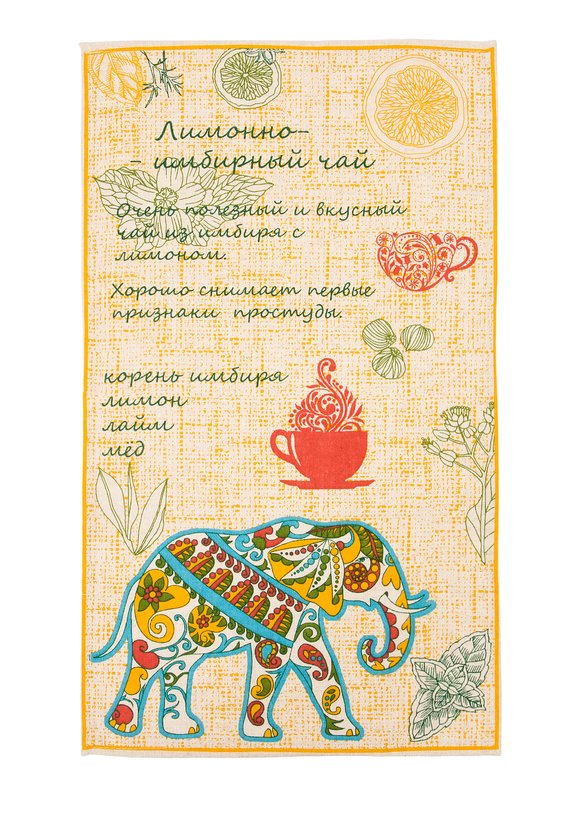 Лимонно-
- имбирный чай
Очень полезный и вкусный
чай из имбиря с
лимоном.
Хорошо снимает первые
признаки простуды.
корень имбиря
лимон
лайм
мёд